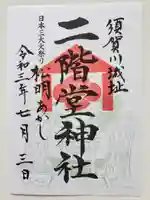 須賀川城址
二階堂神社
日本三大火祭り
松明あかし
令和三年七月三日